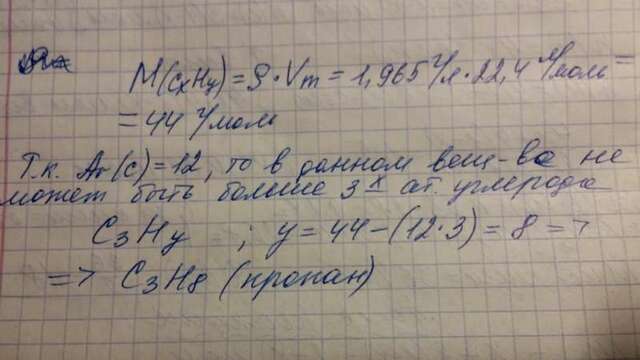 M(CxHy) = ρ · Vm = 1,965 г/л · 22,4 л/моль =
= 44 г/моль
Т.к. Ar(C) = 12, то в данном вещ-ве не
может быть больше 3х ат. углерода
C3Hy ; y = 44 - (12·3) = 8 =>
=> C3H8 (пропан)